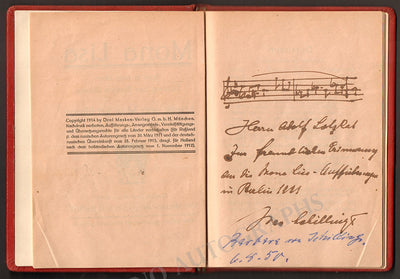 Copyright 1914 by Drei Masken-Verlag G. m. b. H. München.
Nachdruck verboten. Aufführungs-, Arrangements-, Vervielfältigungs-
und Übersetzungsrechte für alle Länder vorbehalten (für Rußland
laut dem russischen Autorengesetz vom 20. März 1911 und der deutsch-
russischen Übereinkunft vom 28. Februar 1913, desgl. für Holland
nach dem holländischen Autorengesetz vom 1. November 1912).
Herrn Adolf
Zur freundlichen Erinnerung
an die Mona Lisa-Aufführungen
in Berlin
Max Schillings
Barbara von Schillings
6.9.50.
AUTOGRAPHS